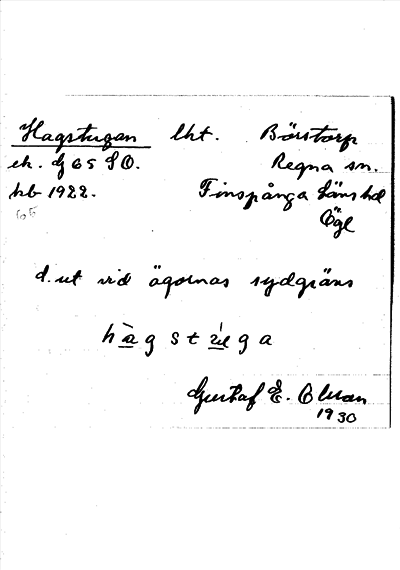 Hagstugan lht. Börstorp
ek. G 65 SO. Regna sn.
hb 1922. Finspånga länshd
65 Ögl
d. ut vid ägornas sydgräns
hàgstúga
Gustaf E. Olsson
1930